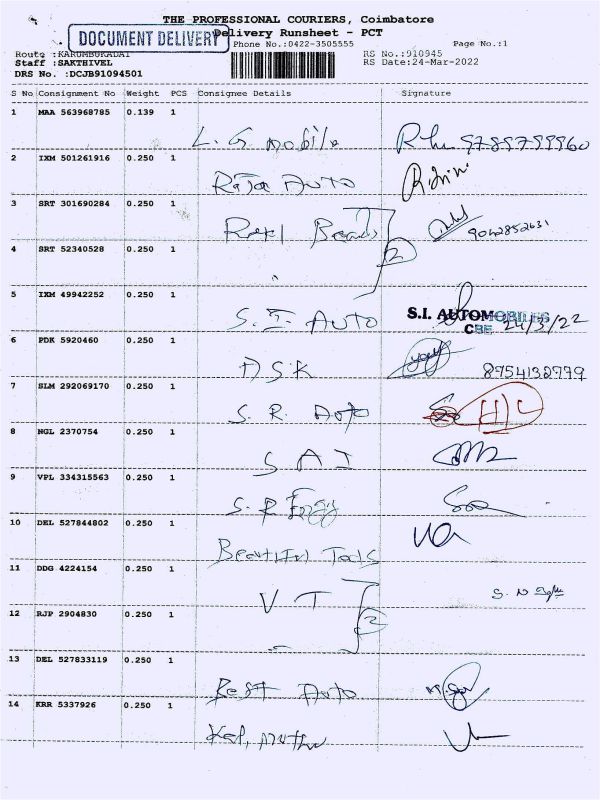 THE PROFESSIONAL COURIERS, Coimbatore
DOCUMENT DELIVERY
Delivery Runsheet - PCT
Phone No.:0422-3505555 Page No.:1
Route :KARUMBUKADAI RS No.:910945
Staff :SAKTHIVEL RS Date:24-Mar-2022
DRS No. :DCJB91094501
S No Consignment No Weight PCS Consignee Details Signature
1 MAA 563968785 0.139 1
L. G mobile 9789799960
2 IXM 501261916 0.250 1
Raja Auto
3 SRT 301690284 0.250 1
Beads 2 9042852631
4 SRT 52340528 0.250 1
5 IXM 49942252 0.250 1
S. I. Auto S.I. AUTOMOBILES
CBE 24/3/22
6 PDK 5920460 0.250 1
DSK 8754132779
7 SLM 292069170 0.250 1
S. R. Auto
8 NGL 2370754 0.250 1
S A I
9 VPL 334315563 0.250 1
S. R
10 DEL 527844802 0.250 1
Beautiful Tools
11 DDG 4224154 0.250 1
V T 2 S. N
12 RJP 2904830 0.250 1
13 DEL 527833119 0.250 1
Best Auto
14 KRR 5337926 0.250 1